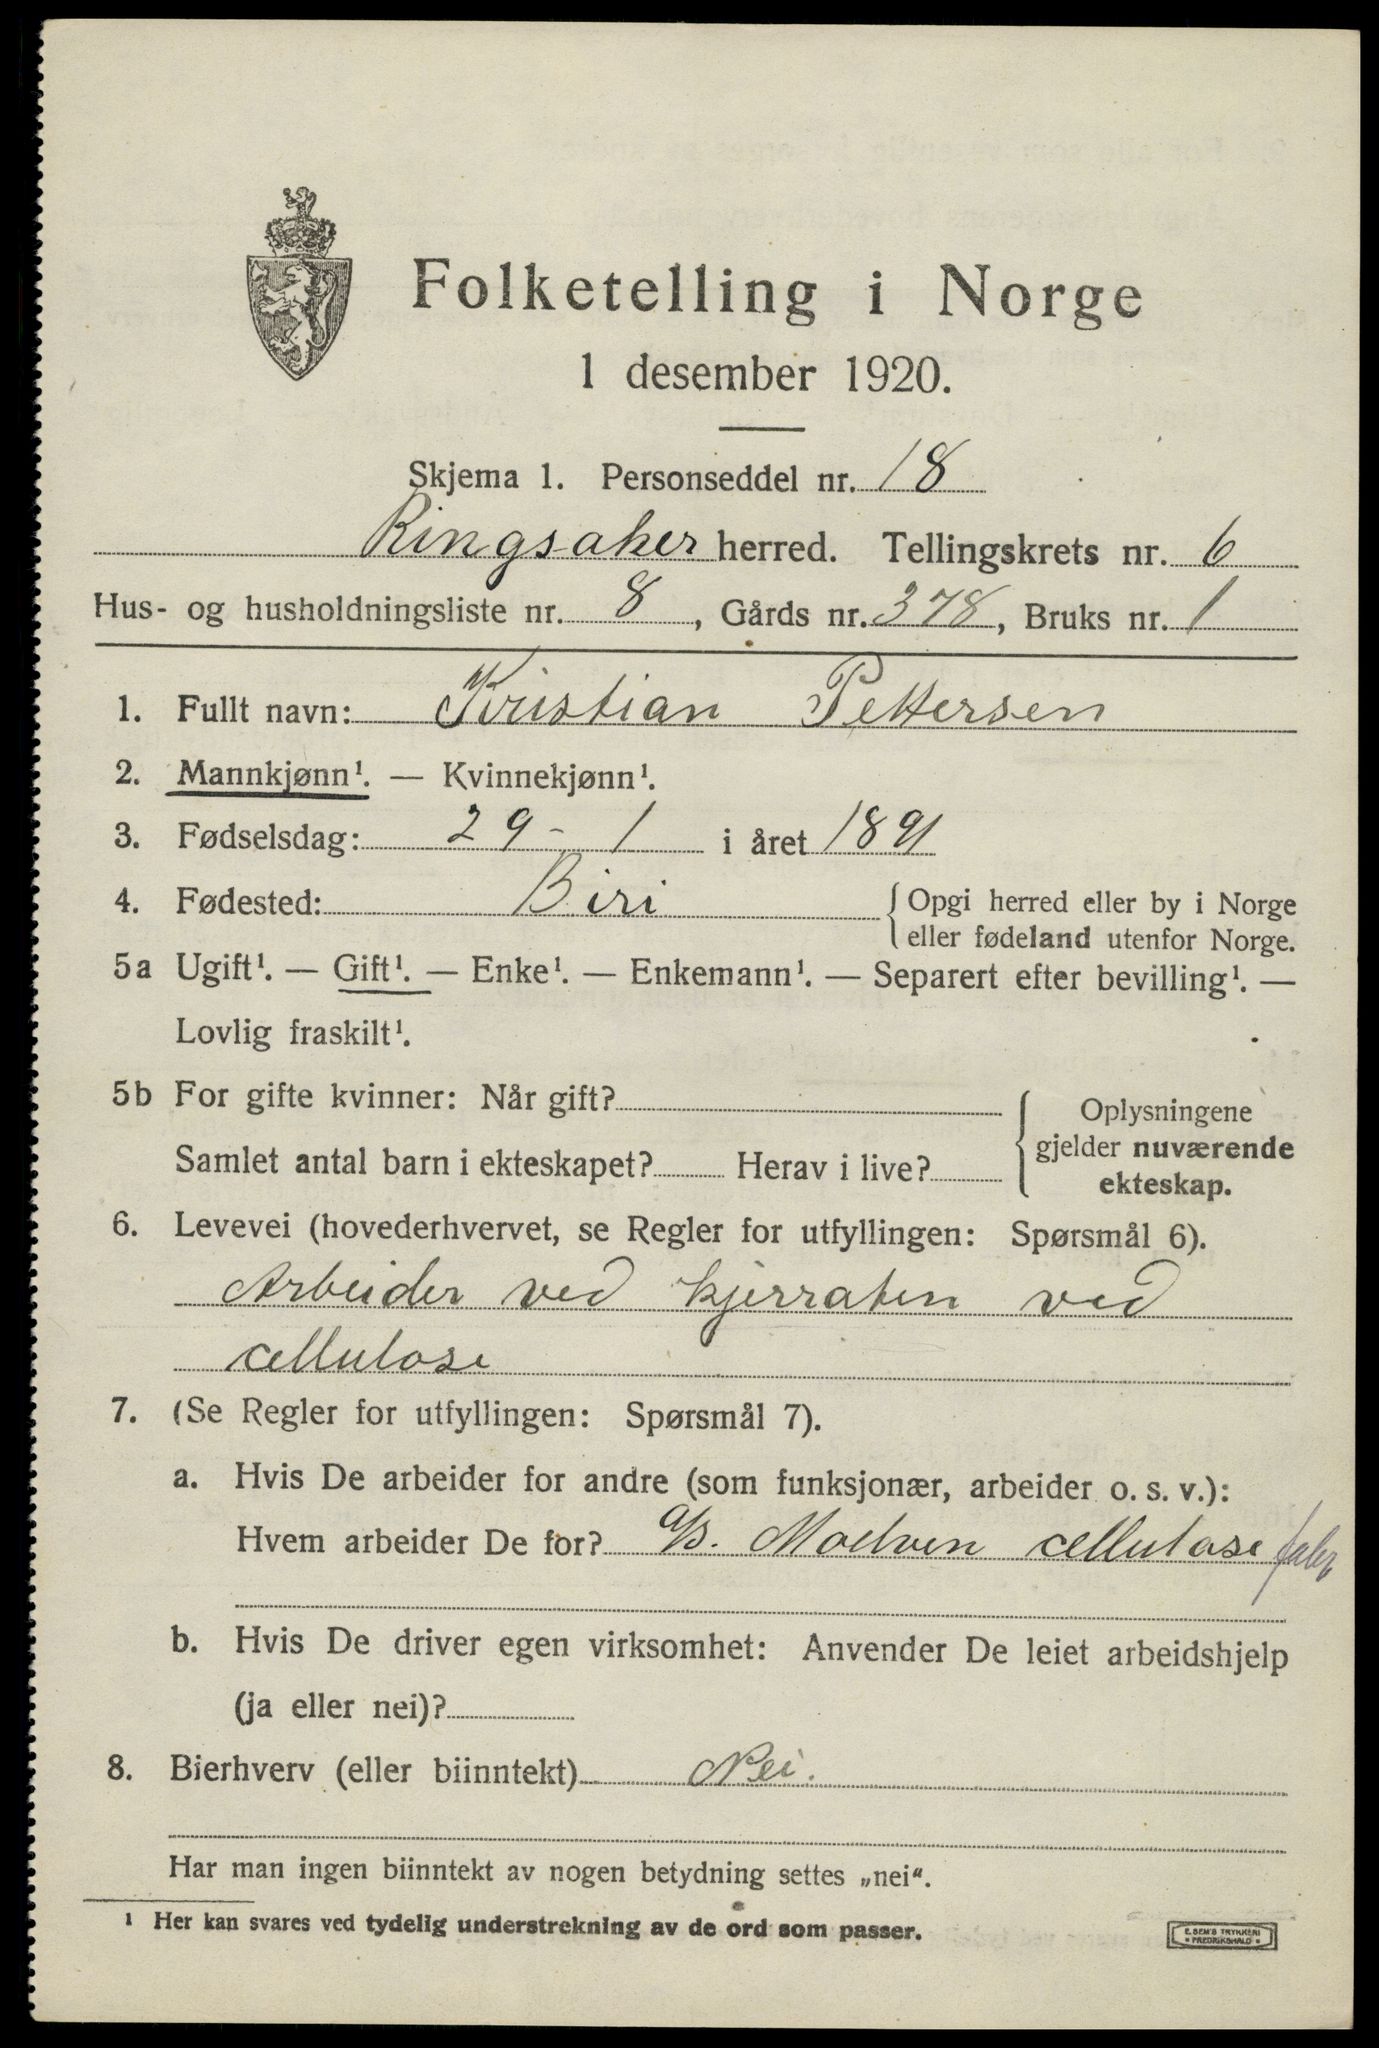 Folketelling i Norge
1 desember 1920.
Skjema 1. Personseddel nr. 18
Ringsaker herred. Tellingskrets nr. 6
Hus- og husholdningsliste nr. 8, Gårds nr. 378, Bruks nr. 1
1. Fullt navn: Kristian Pettersen
2. Mannkjønn¹. — Kvinnekjønn¹.
3. Fødselsdag: 29 - 1 i året 1891
4. Fødested: Biri { Opgi herred eller by i Norge
eller fødeland utenfor Norge.
5a Ugift¹. — Gift¹. — Enke¹. — Enkemann¹. — Separert efter bevilling¹. —
Lovlig fraskilt¹.
5b For gifte kvinner: Når gift? { Oplysningene
gjelder nuværende
ekteskap.
Samlet antal barn i ekteskapet? Herav i live?
6. Levevei (hovederhvervet, se Regler for utfyllingen: Spørsmål 6).
Arbeider ved kjerraten ved
cellulose
7. (Se Regler for utfyllingen: Spørsmål 7).
a. Hvis De arbeider for andre (som funksjonær, arbeider o. s. v.):
Hvem arbeider De for? a/s. Moelven cellulose
b. Hvis De driver egen virksomhet: Anvender De leiet arbeidshjelp
(ja eller nei)?
8. Bierhverv (eller biinntekt) Nei.
Har man ingen biinntekt av nogen betydning settes „nei".
¹ Her kan svares ved tydelig understrekning av de ord som passer.
E. SEM'S TRYKKERI
FREDRIKSHALD